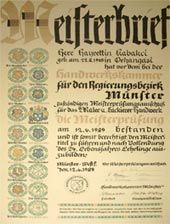 Meisterbrief
Herr Hayrettin Kabalci
hat vor dem bei der
Handwerkskammer
für den Regierungsbezirk
Münster
zuständigen Meisterprüfungsausschuß
für das Maler u. Lackierer Handwerk
die Meisterprüfung
am 12.4.1989 bestanden
und ist somit berechtigt den Meister-
titel zu führen und nach Vollendung
des 24. Lebensjahres Lehrlinge aus-
zubilden.
Münster
den 12.4.1989
Handwerkskammer Münster